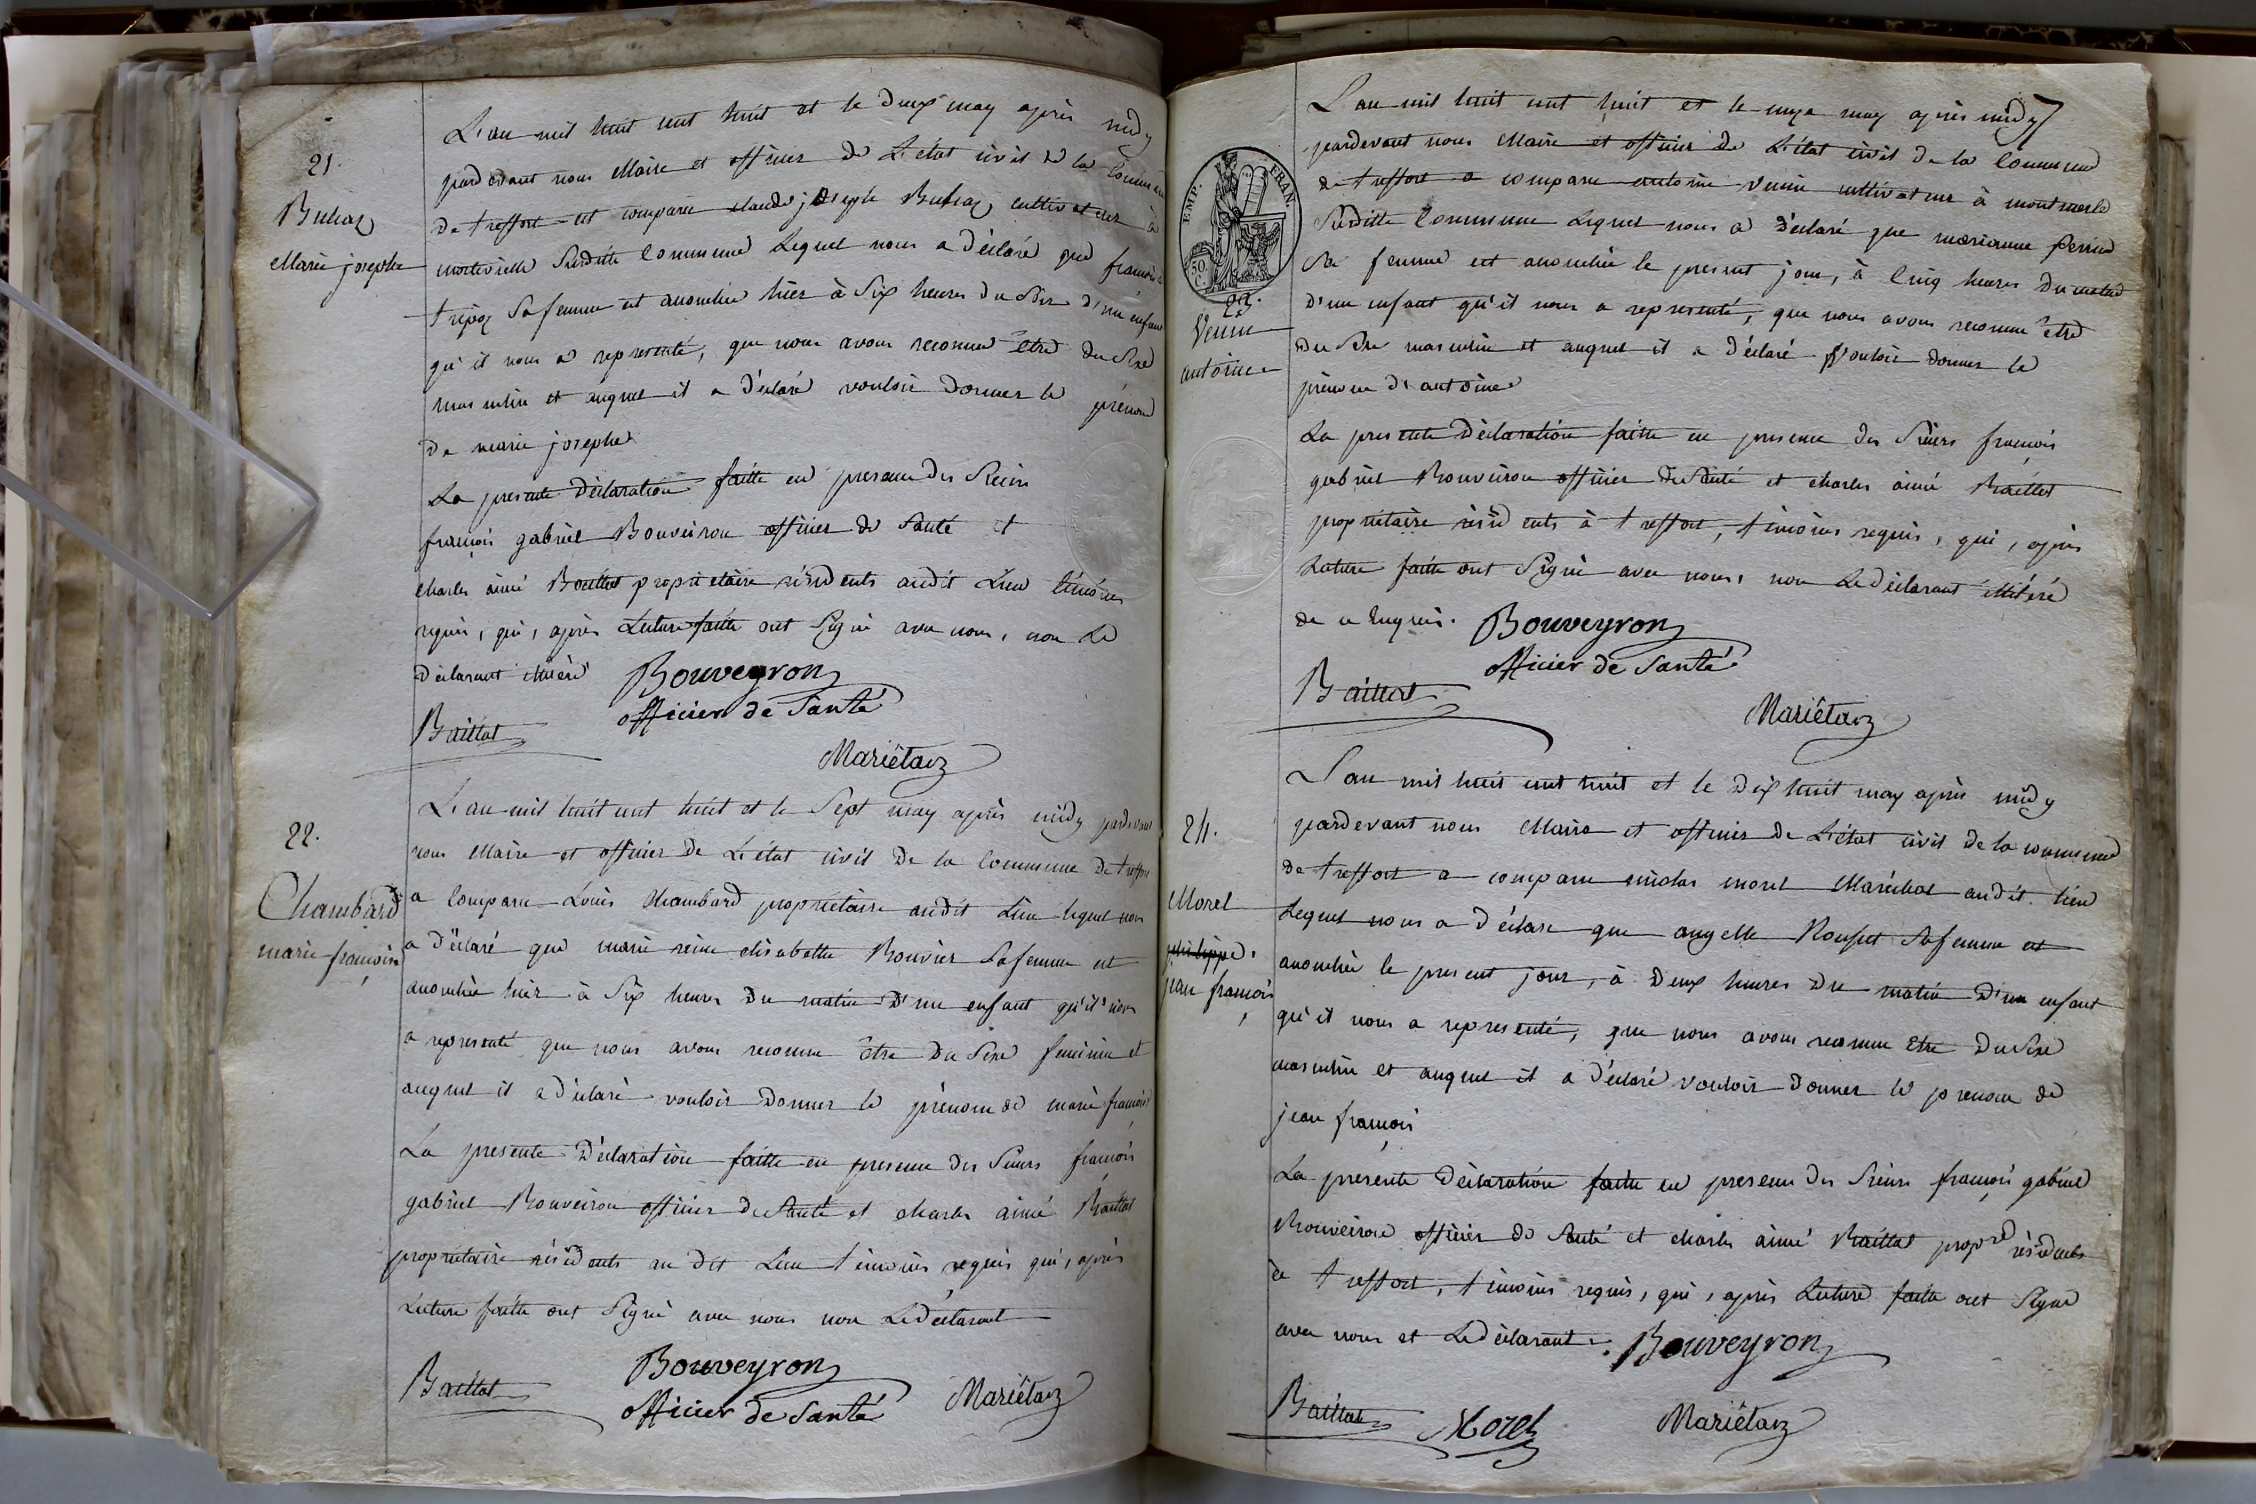 21.
Buhaz
Marie josephe
L'an mil huit cent huit et le deux may après midy
pardevant nous Maire et officier de L'état civil de la Commune
de treffort est comparu claude joseph Buhaz cultivateur à
montievielle Susditte Commune Lequel nous a déclaré que françoise
trepoz Sa femme est accouchée hier à Six heures du Soir d'un enfant
qu'il nous a representé, que nous avons reconnu être du Sexe
masculin et auquel il a déclaré vouloir donner le prénom
de marie josephe
La presente déclaration faitte en presence des Sieurs
françois gabriel Bouveiron officier de Santé et
charles aimé Baillat propriétaire résidents audit Lieu témoins
requis, qui, après Lecture faitte ont Signé avec nous, non Le
déclarant illitéré
Bouveyron
officier de Santé
Baillat
Mariêtan
22.
Chambard
marie françoise
L'an mil huit cent huit et le Sept may après midy pardevant
nous Maire et officier de L'état civil de la Commune de treffort
a Comparu Louis Chambard propriétaire audit Lieu lequel nous
a déclaré que marie reine elisabette Bouvier Sa femme est
accouchée hier à Six heures du matin d'un enfant qu'il nous
a representé que nous avons reconnu être du Sexe feminin et
auquel il a déclaré vouloir donner le prénom de marie françoise
La presente déclaration faitte en presence des Sieurs françois
gabriel Bouveiron officier de Santé et charles aimé Baillat
propriétaire résidents au dit Lieu témoins requis qui, après
Lecture faitte ont Signé avec nous non Le déclarant
Bouveyron
officier de Santé
Baillat
Mariêtan
EMP. FRAN.
50 C.
23.
Venin
antoine
L'an mil huit cent huit et le onze may après midy
pardevant nous Maire et officier de L'état civil de la Commune
de treffort a comparu antoine Venin cultivateur à montmerle
Susditte Commune Lequel nous a déclaré que marianne perrin
Sa femme est accouchée le present jour, à Cinq heures du matin
d'un enfant qu'il nous a representé, que nous avons reconnu être
du Sexe masculin et auquel il a déclaré vouloir donner le
prénom d'antoine
La presente déclaration faitte en presence des Sieurs françois
gabriel Bouveiron officier de Santé et charles aimé Baillat
propriétaire résidents à treffort, témoins requis, qui, après
Lecture faitte ont Signé avec nous, non Le déclarant illitéré
de ce Enquis.
Bouveyron
officier de Santé
Baillat
Mariêtan
24.
Morel
philippe.
jean françois
L'an mil huit cent huit et le dix huit may après midy
pardevant nous Maire et officier de L'état civil de la commune
de treffort a comparu nicolas morel Maréchal audit lieu
Lequel nous a déclaré que angelle Roupet Sa femme est
accouchée le present jour, à deux heures du matin d'un enfant
qu'il nous a representé, que nous avons reconnu Etre du Sexe
masculin et auquel il a déclaré vouloir donner le prenom de
jean françois
La présente déclaration faitte en presence des Sieurs françois gabriel
Bouveiron officier de Santé et charles aimé Baillat propre résidents
à treffort, témoins requis, qui, après Lecture faitte ont Signé
avec nous et Le déclarant.
Bouveyron
Baillat
Morel
Mariêtan